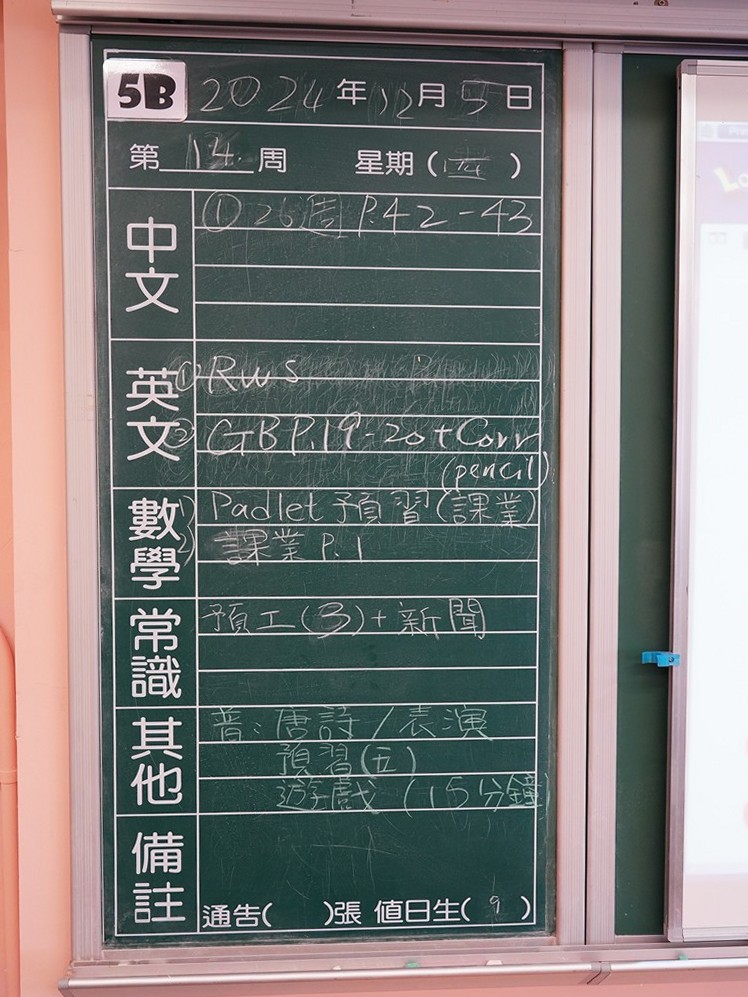 5B 2024年12月5日
第14周 星期(四)
中文
① 26周 P.42-43
英文
① RWS
② GB P.19-20 + Corr
(pencil)
數學
1) Padlet 預習(課業)
2) 課業 P.1
常識
預工(3)+新聞
其他
普:唐詩/表演
預習(五)
遊戲(15分鐘)
備註
通告( )張 值日生(9)